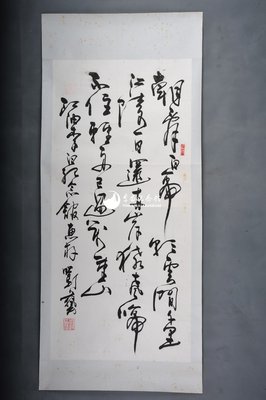 朝辞白帝彩雲間千里
江陵一日還两岸猿聲啼
不住輕舟已過萬重山
江油李白纪念館惠存 劉